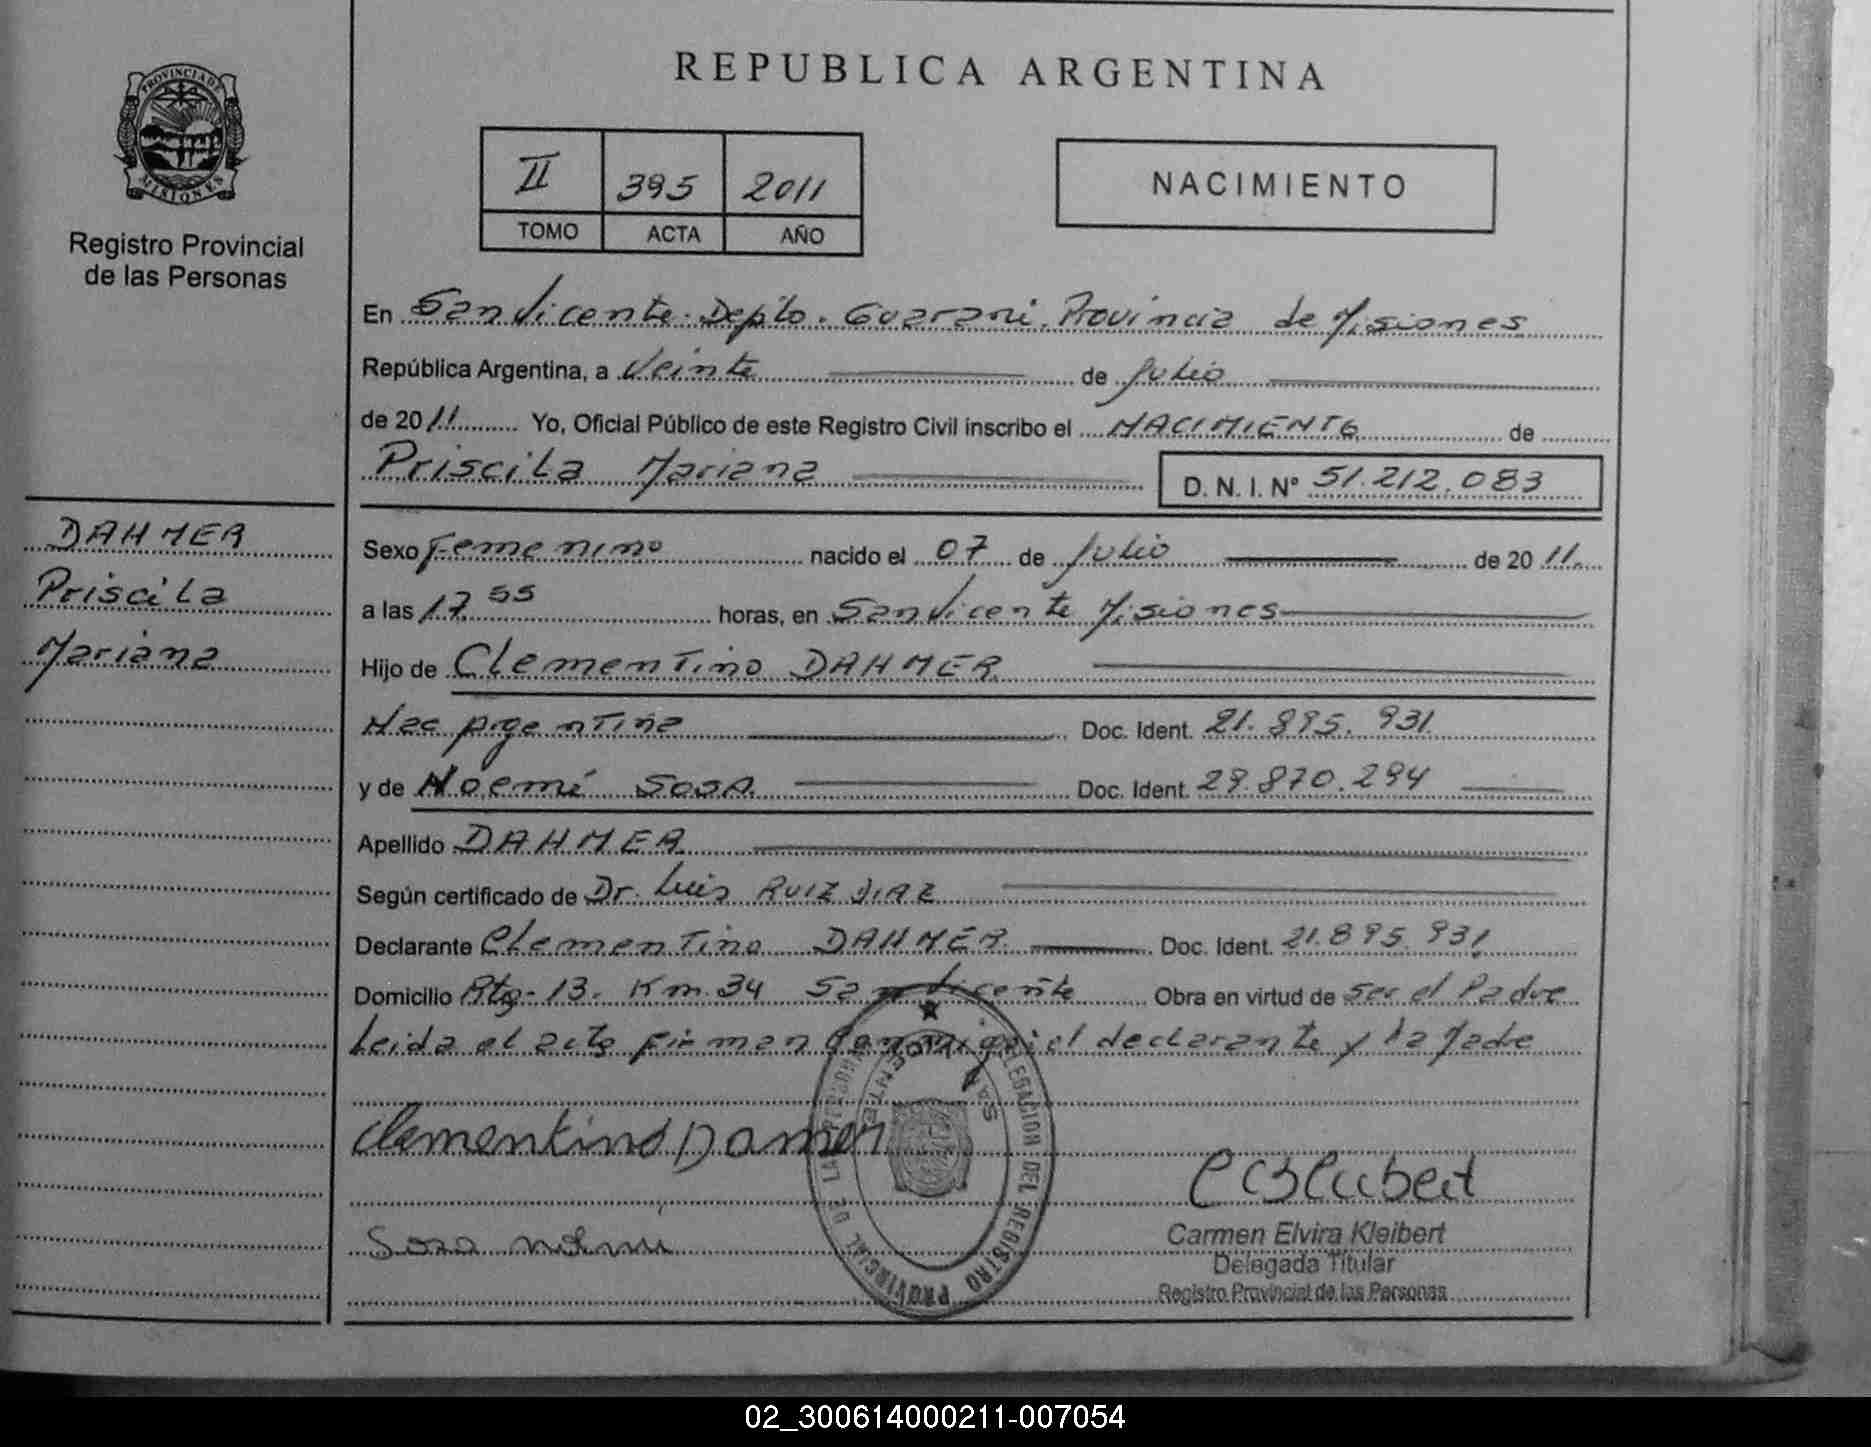 REPUBLICA ARGENTINA
PROVINCIA DE
MISIONES
Registro Provincial
de las Personas
II 395 2011
TOMO ACTA AÑO
NACIMIENTO
En San Vicente. Depto. Guarani. Provincia de Misiones
República Argentina, a Veinte de Julio
de 2011 Yo, Oficial Público de este Registro Civil inscribo el NACIMIENTO de
Priscila Mariana D. N. I. Nº 51.212.083
DAHMER
Priscila
Mariana
Sexo Femenino nacido el 07 de Julio de 2011.
a las 17 55 horas, en San Vicente Misiones
Hijo de Clementino DAHMER
Nac Argentina Doc. Ident. 21.895.931
y de Noemí SOSA Doc. Ident. 29.870.294
Apellido DAHMER
Según certificado de Dr. Luis RUIZ DIAZ
Declarante Clementino DAHMER Doc. Ident. 21.895.931
Domicilio Rta- 13. Km. 34 San Vicente Obra en virtud de ser el Padre
Leida el acta firman conmigo el declarante y la Madre
DELEGACION DEL REGISTRO PROVINCIAL DE LAS PERSONAS
SAN VICENTE
clementino Damer
Sosa
Carmen Elvira Kleibert
Delegada Titular
Registro Provincial de las Personas
02_300614000211-007054